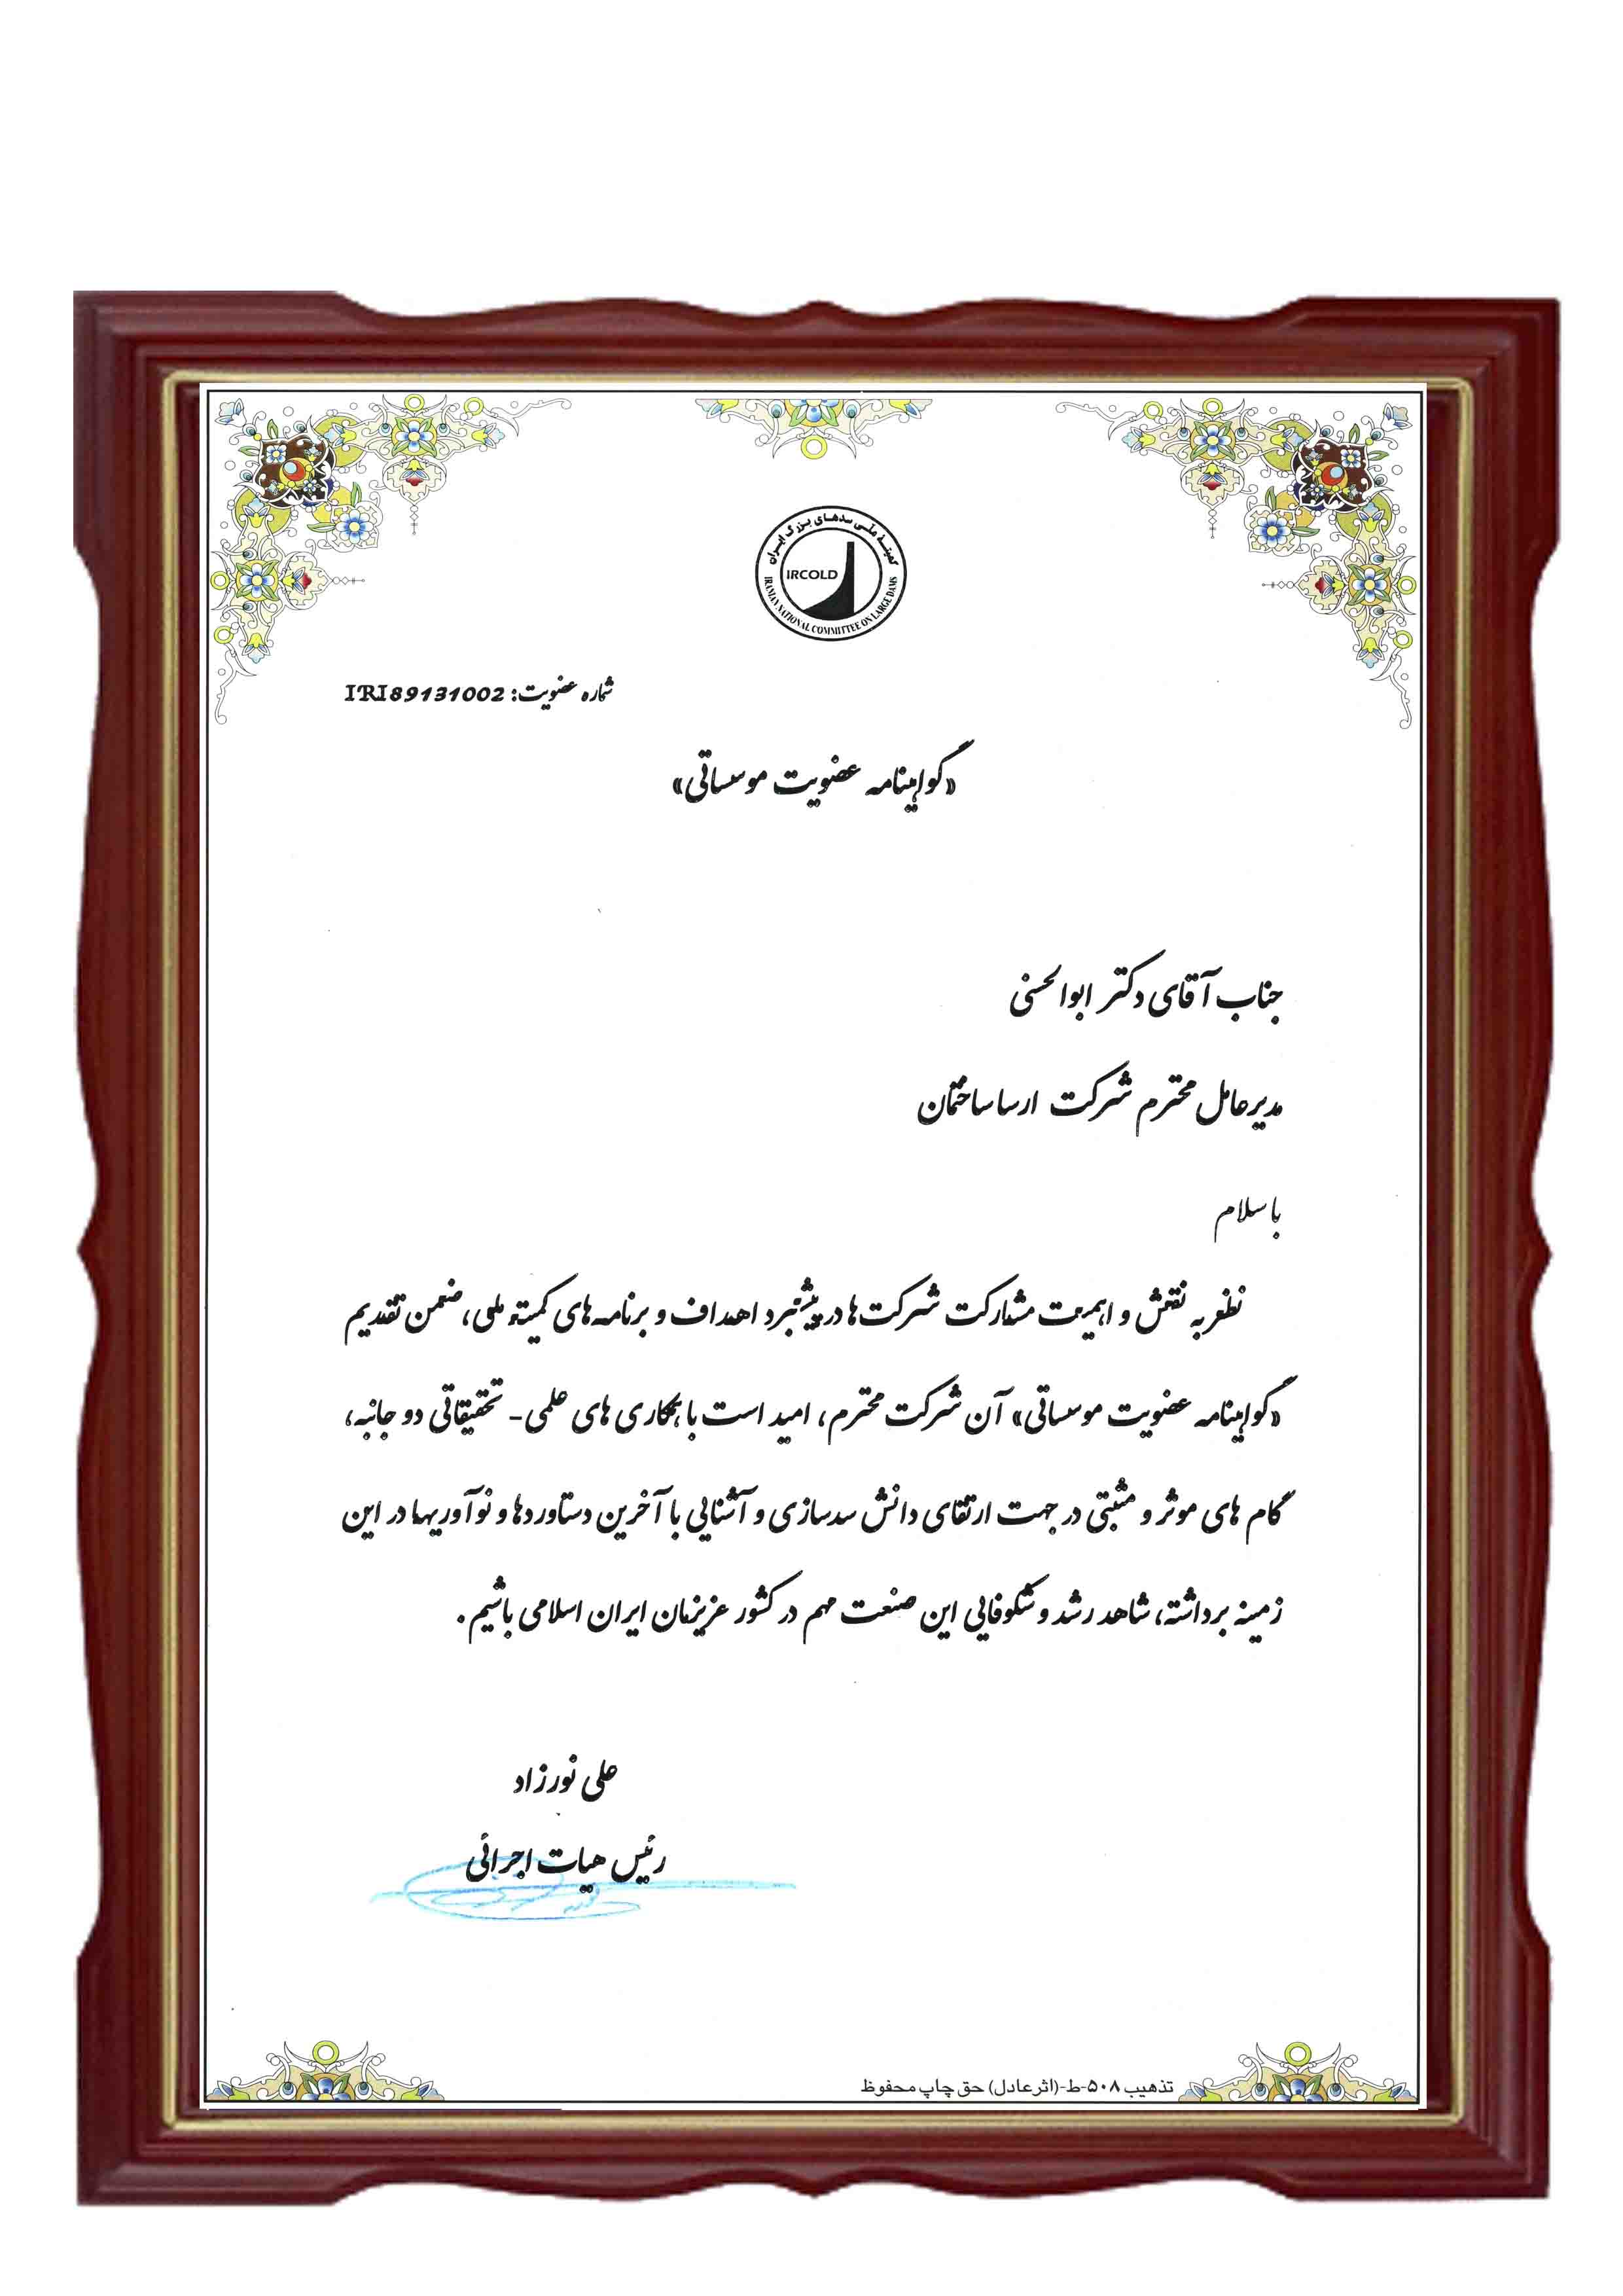 کمیتهٔ ملی سدهای بزرگ ایران
IRCOLD
IRANIAN NATIONAL COMMITTEE ON LARGE DAMS
شماره عضویت: IRI89131002
«گواهینامه عضویت موسساتی»
جناب آقای دکتر ابوالحسنی
مدیرعامل محترم شرکت ارسا ساختمان
با سلام
نظر به نقش و اهمیت مشارکت شرکت ها در پیشبرد اهداف و برنامه های کمیته ملی، ضمن تقدیم
«گواهینامه عضویت موسساتی» آن شرکت محترم، امید است با همکاری های علمی- تحقیقاتی دو جانبه،
گام های موثر و مثبتی در جهت ارتقای دانش سدسازی و آشنایی با آخرین دستاوردها و نوآوریها در این
زمینه برداشته، شاهد رشد و شکوفایی این صنعت مهم در کشور عزیزمان ایران اسلامی باشیم.
علی نورزاد
رئیس هیات اجرائی
تذهیب ۵۰۸-ط-(اثر عادل) حق چاپ محفوظ